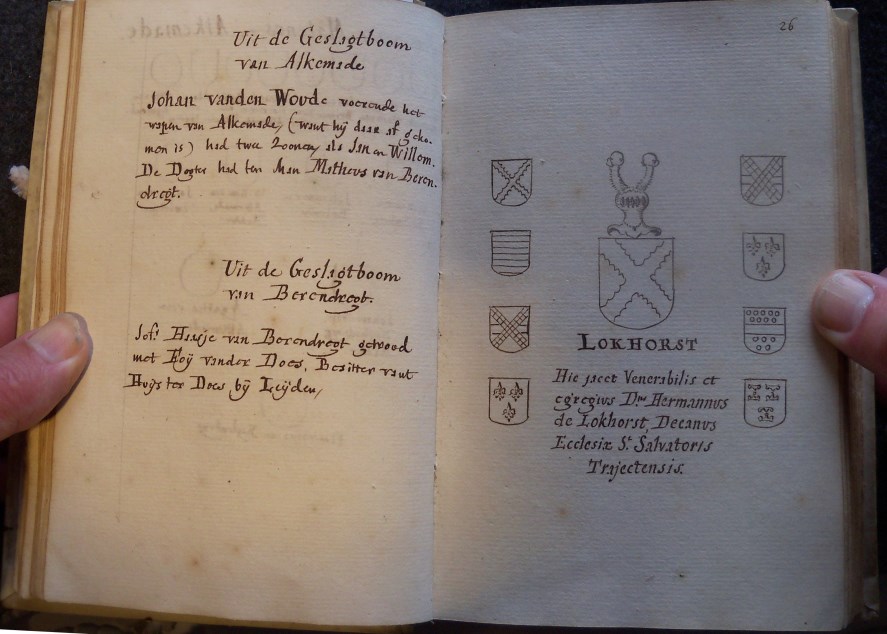 Uit de Geslagtboom
van Alkemade
Johan vanden Woude voerende het
wapen van Alkemade, (want hij daar af geko-
men is) had twee Zoonen, als Jan en Willem.
De Dogter had ten Man Matheus van Beren-
dregt.
Uit de Geslagtboom
van Berendregt.
Jofr. Haasje van Berendregt getrood
met Floÿ vander Does, Besitter vant
Huÿs ter Does bÿ Leÿden,
26
LOKHORST
Hic jacet Venerabilis et
egregius Dnus Hermannus
de Lokhorst, Decanus
Ecclesiæ St. Salvatoris
Trajectensis.